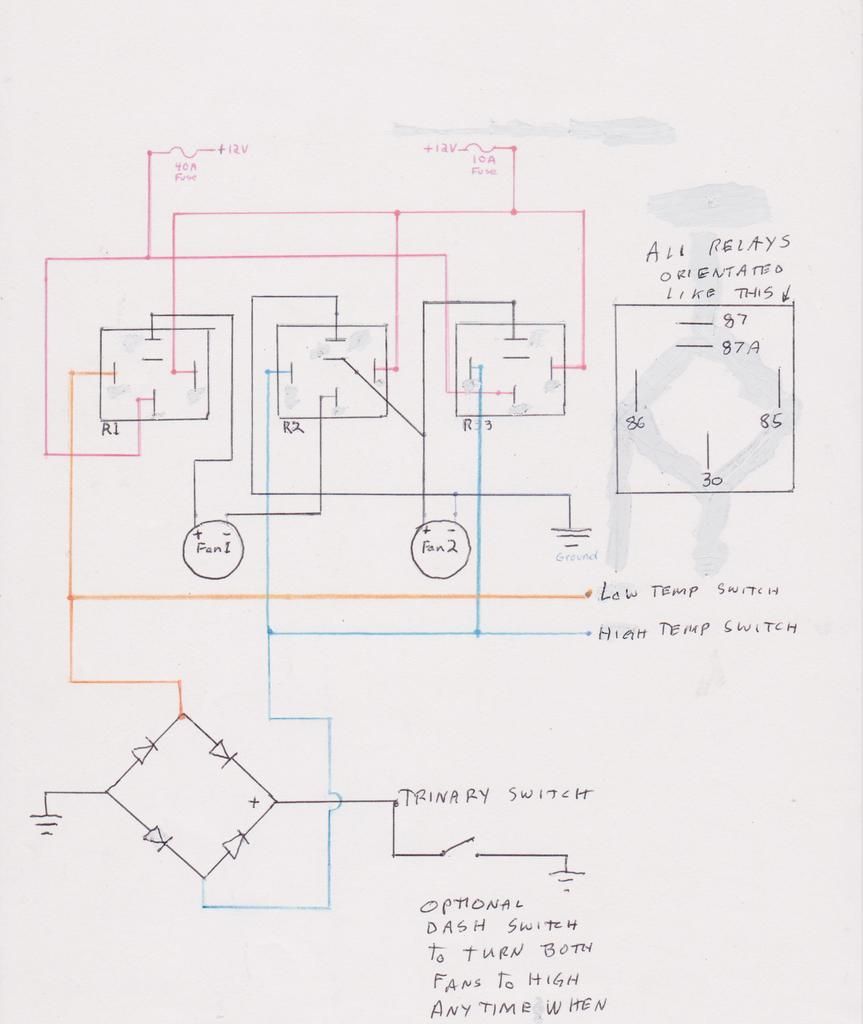 +12V
40A
Fuse
+12V
10A
Fuse
ALL RELAYS
ORIENTATED
LIKE THIS
87
87A
86
85
30
R1
R2
R3
+ -
Fan1
+ -
Fan2
Ground
LOW TEMP SWITCH
HIGH TEMP SWITCH
+
TRINARY SWITCH
OPTIONAL
DASH SWITCH
TO TURN BOTH
FANS TO HIGH
ANYTIME WHEN